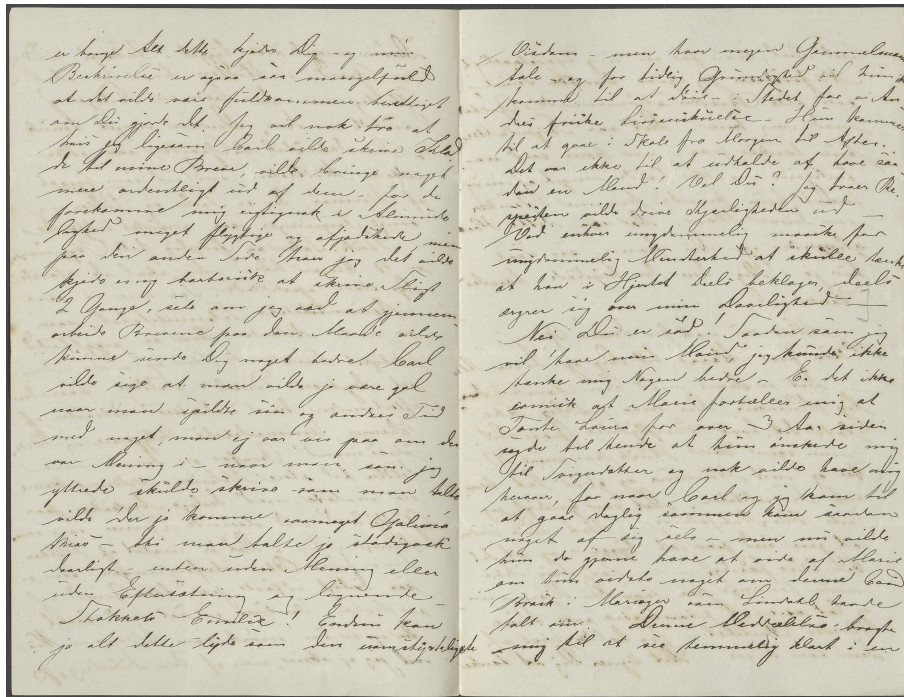 er bange det dette kjeder Dig - og min
Beskrivelse er ogsaa saa mangelfuld
at det vilde være fuldkommen berettiget
om Du gjorde det. Jeg vil nok tro at
hvis jeg ligesom Carl vilde skrive
de til mine Breve, vilde bringe noget
mere ordentligt ud af dem, for de
forekommer mig rigtignok i Alminde
lighed meget flygtige og afjaskede men
paa den anden Side troer jeg det vilde
kjede mig barbarisk at skrive Sligt
2 Gange, selv om jeg ved at gjennem
arbeide Brevene paa den Maade vilde
kunne sende Dig noget bedre. Carl
vilde sige at man vilde jo være gal
naar man spildte sin og andres Tid
med noget, man ej var vis paa om der
var Mening i - naar man, som jeg
yttrede skulde skrive som man talte
vilde der jo komme saameget Galima
thias - thi man talte jo stadigvæk
daarligt - enten uden Mening eller
uden Eftersætning og lignende
Stakkels Emilie! Endnu kan
jo alt dette lyde som den
Visdom - men hvor megen Gammelmands
tale - og for tidlig Grundighed vil hun
komme til at døie - i Stedet for en An
dens friske Livsanskuelse - Hun kommer
til at gaae i Skole fra Morgen til Aften.
Det var ikke til at udholde af have saa
dan en Mand! Vel Du? Jeg troer Re-
specten vilde drive Kjærligheden ud
Ved enhver ungdommelig maaske for
ungdommelig Munterhed at skulle tænke
at han i Hjertet Deels beklager, deels
ærgrer sig over min Daarlighed -
Nei Du er sød! Saadan som jeg
vil have min Mand, jeg kunde ikke
tænke mig Nogen bedre - Er det ikke
comisk at Marie fortæller mig at
Tante Laura for over 3 Aar siden
sagde til hende at hun ønskede mig
til Svigerdatter og nok vilde have mig
herover, for naar Carl og jeg kom til
at gaae daglig sammen kom saadan
noget af sig selv - men nu vilde
hun da gjerne have at vide af Marie
om hun vidste noget om denne Cand
i Mariager som Lindahl havde
talt om. Denne Meddelelse bragte
mig til at see temmelig klart i en